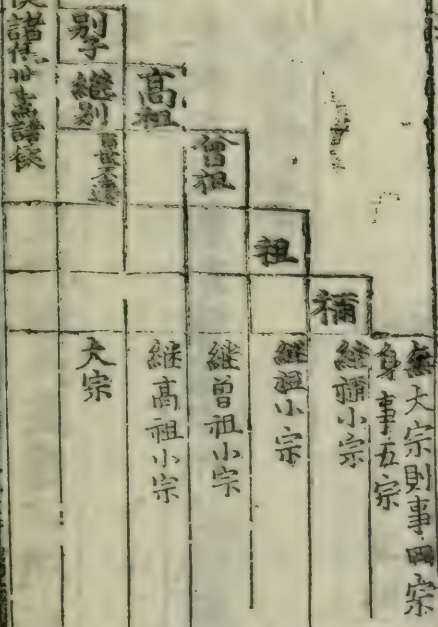 無大宗則事四宗
身事五宗
禰
継禰小宗
祖
継祖小宗
曾祖
継曾祖小宗
高祖
継高祖小宗
別子
継別
百世不遷
大宗
諸侯世為諸侯